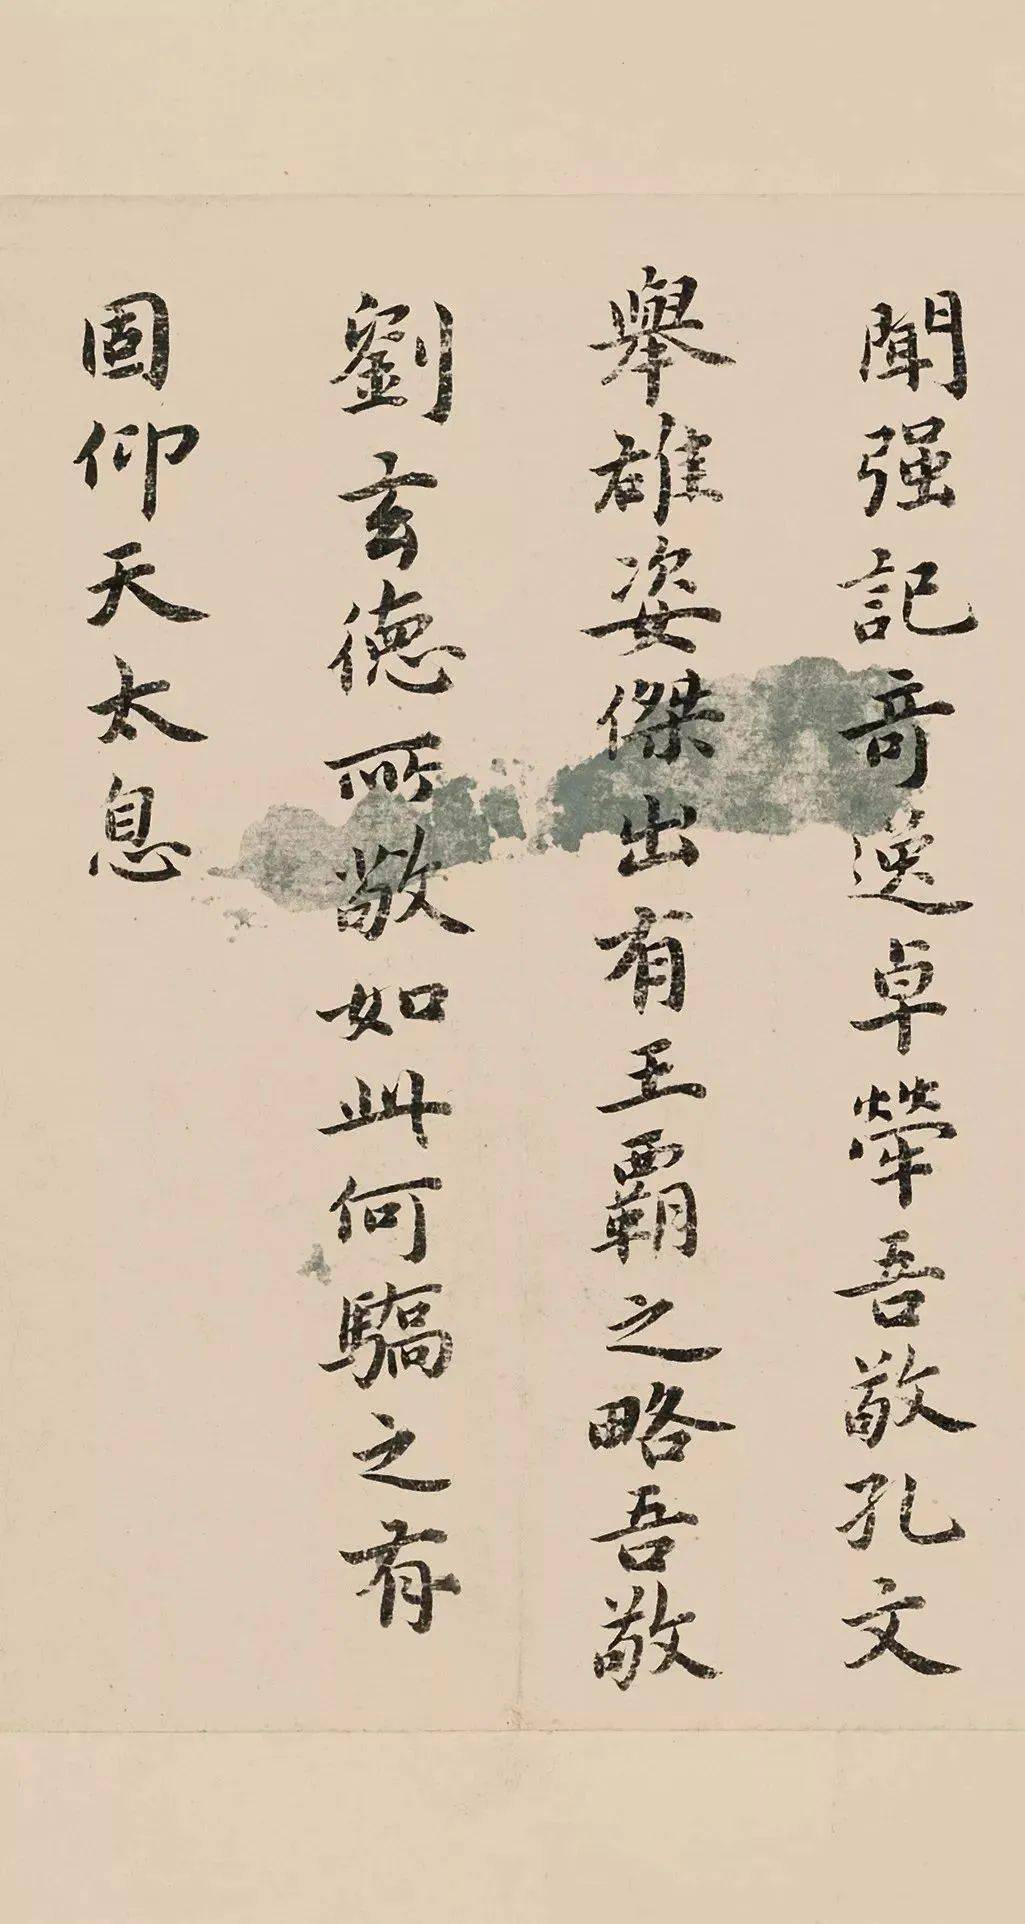 聞强記奇逸卓犖吾敬孔文
舉雄姿傑出有王覇之略吾敬
劉玄德所敬如此何驕之有
固仰天太息